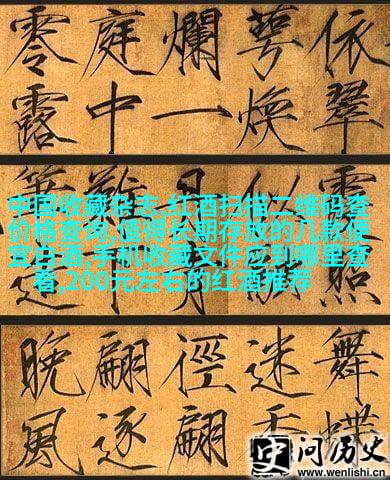 依翠
萼煥
爛一
庭中
零露
中国收藏杂志,红酒扫描二维码查
价格查询,值得长期存放的几款便
宜白酒,手机收藏文件应到哪里查
看,200元左右的红酒推荐
舞蝶
迷香
徑翩
翩逐
晚風
问历史
www.wenlishi.cn